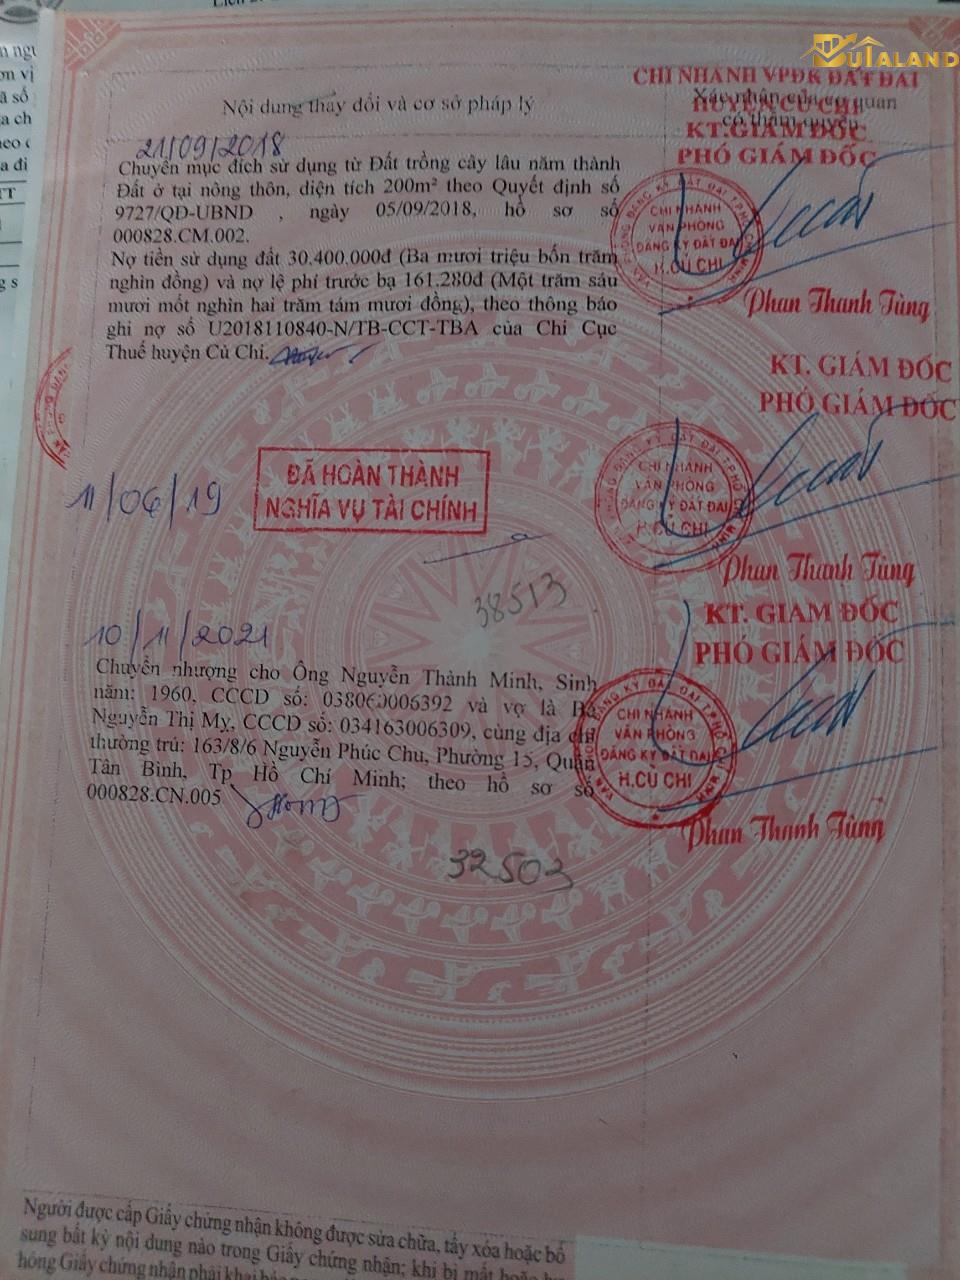 BUTALAND
Nội dung thay đổi và cơ sở pháp lý
Xác nhận của cơ quan
có thẩm quyền
CHI NHÁNH VPĐK ĐẤT ĐAI
HUYỆN CỦ CHI
KT.GIÁM ĐỐC
PHÓ GIÁM ĐỐC
21/09/2018
Chuyển mục đích sử dụng từ Đất trồng cây lâu năm thành
Đất ở tại nông thôn, diện tích 200m² theo Quyết định số
9727/QĐ-UBND , ngày 05/09/2018, hồ sơ số
000828.CM.002.
Nợ tiền sử dụng đất 30.400.000đ (Ba mươi triệu bốn trăm
nghìn đồng) và nợ lệ phí trước bạ 161.280đ (Một trăm sáu
mươi mốt nghìn hai trăm tám mươi đồng), theo thông báo
ghi nợ số U2018110840-N/TB-CCT-TBA của Chi Cục
Thuế huyện Củ Chi.
VĂN PHÒNG ĐĂNG KÝ ĐẤT ĐAI T.P HỒ CHÍ MINH
CHI NHÁNH
VĂN PHÒNG
ĐĂNG KÝ ĐẤT ĐAI
H.CỦ CHI
Phan Thanh Tùng
KT. GIÁM ĐỐC
PHÓ GIÁM ĐỐC
11/06/19
ĐÃ HOÀN THÀNH
NGHĨA VỤ TÀI CHÍNH
CHI NHÁNH
VĂN PHÒNG
ĐĂNG KÝ ĐẤT ĐAI
H.CỦ CHI
Phan Thanh Tùng
38513
KT. GIÁM ĐỐC
PHÓ GIÁM ĐỐC
10/11/2021
Chuyển nhượng cho Ông Nguyễn Thành Minh, Sinh
năm: 1960, CCCD số: 038060006392 và vợ là Bà
Nguyễn Thị Mỵ, CCCD số: 034163006309, cùng địa chỉ
thường trú: 163/8/6 Nguyễn Phúc Chu, Phường 15, Quận
Tân Bình, Tp Hồ Chí Minh; theo hồ sơ số
000828.CN.005
CHI NHÁNH
VĂN PHÒNG
ĐĂNG KÝ ĐẤT ĐAI
H.CỦ CHI
Phan Thanh Tùng
32503
Người được cấp Giấy chứng nhận không được sửa chữa, tẩy xóa hoặc bổ
sung bất kỳ nội dung nào trong Giấy chứng nhận; khi bị mất hoặc hư
hỏng Giấy chứng nhận phải khai báo